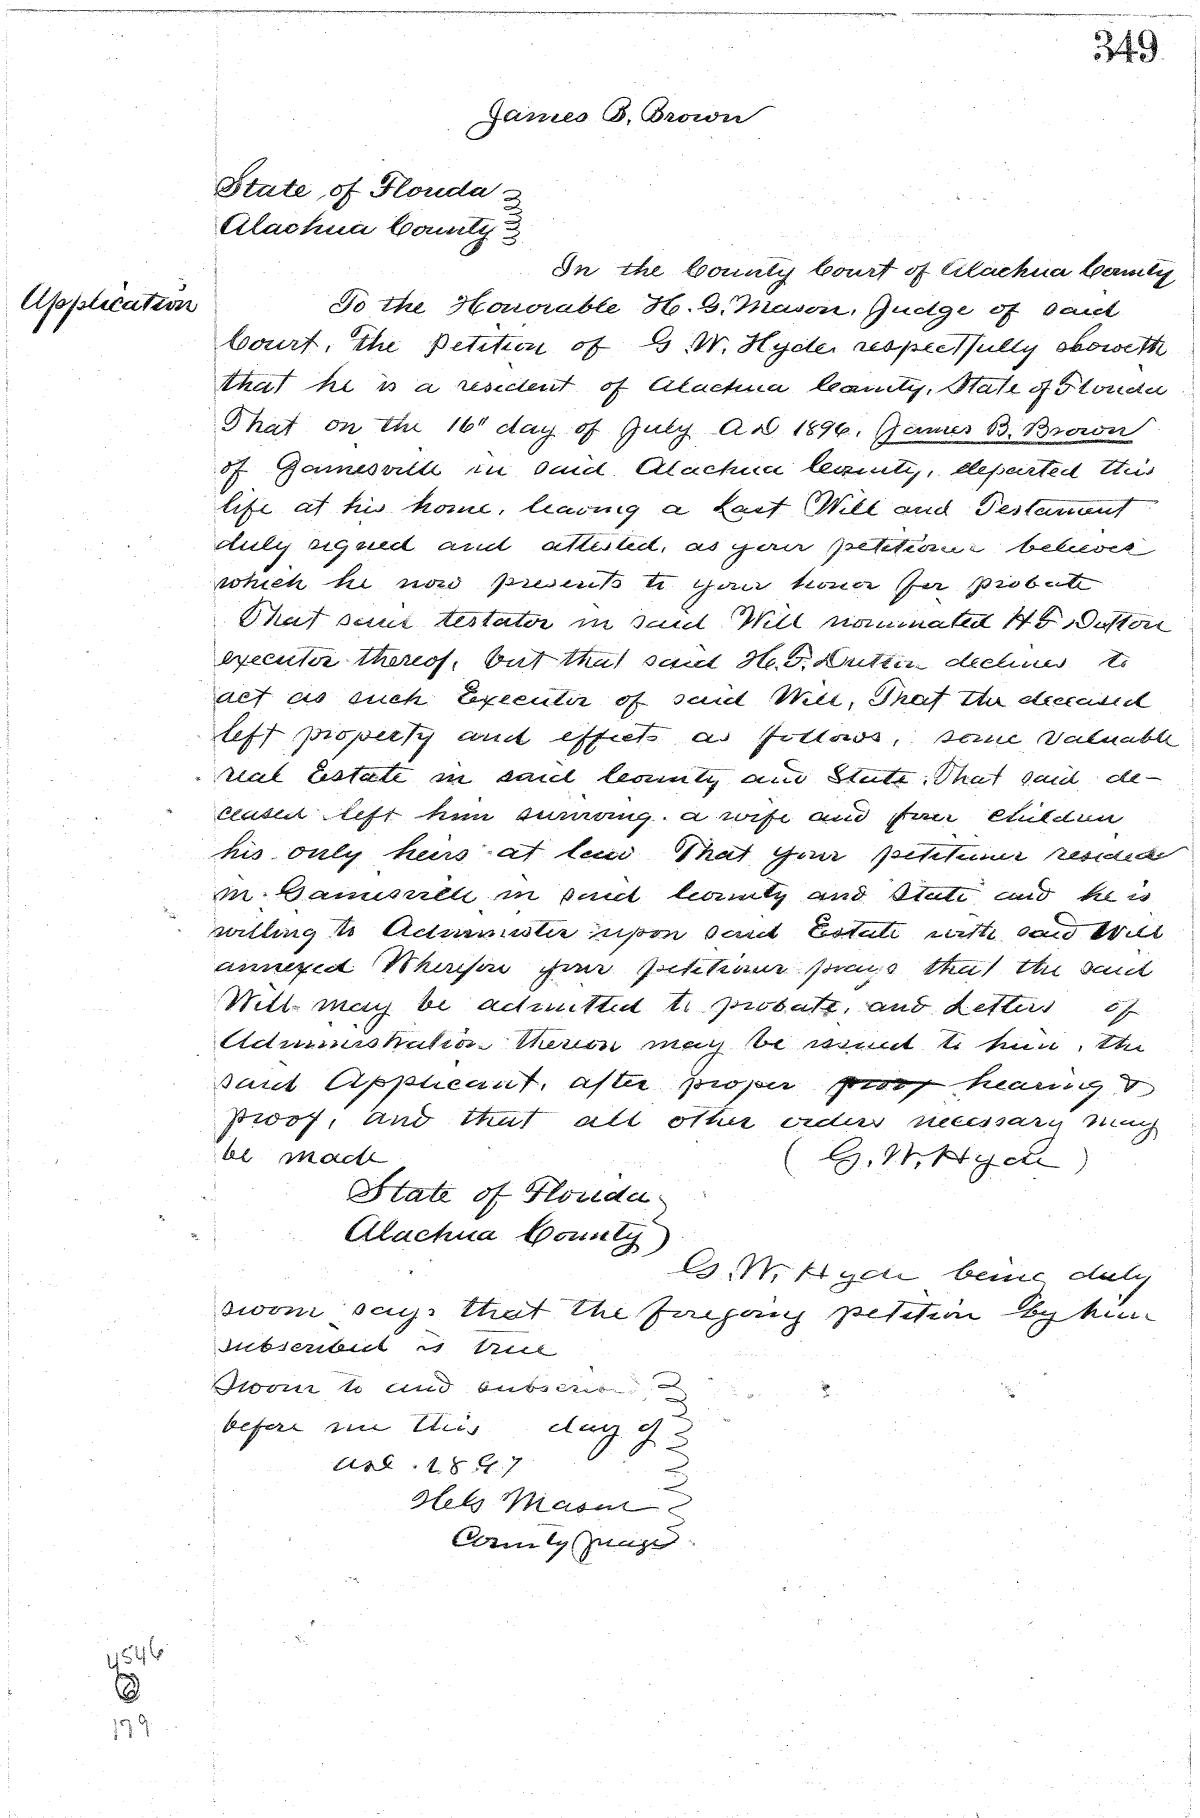 349
James B. Brown
State of Florida
Alachua County
In the County Court of Alachua County
Application
To the Honorable H. G. Mason, Judge of said
Court, The Petition of G. W. Hyde respectfully showeth
that he is a resident of Alachua County, State of Florida
That on the 16" day of July AD 1896, James B. Brown
of Gainesville in said Alachua County, departed this
life at his home, leaving a Last Will and Testament
duly signed and attested, as your petitioner believes
which he now presents to your honor for probate
That said testator in said Will nominated H F Dutton
executor thereof, but that said H. F. Dutton declines to
act as such Executor of said Will, That the deceased
left property and effects as follows, some valuable
real Estate in said County and State. That said de-
ceased left him surviving a wife and four children
his only heirs at law That your petitioner resides
in Gainesville in said County and State and he is
willing to Administer upon said Estate with said Will
annexed Wherefore your petitioner prays that the said
Will may be admitted to probate, and Letters of
Administration thereon may be issued to him, the
said Applicant, after proper proof hearing &
proof, and that all other orders necessary may
be made (G. W. Hyde)
State of Florida
Alachua County
G. W. Hyde being duly
sworn says that the foregoing petition by him
subscribed is true
Sworn to and subscribed
before me this day of
AD. 1897
Mason
County Judge
4546
179